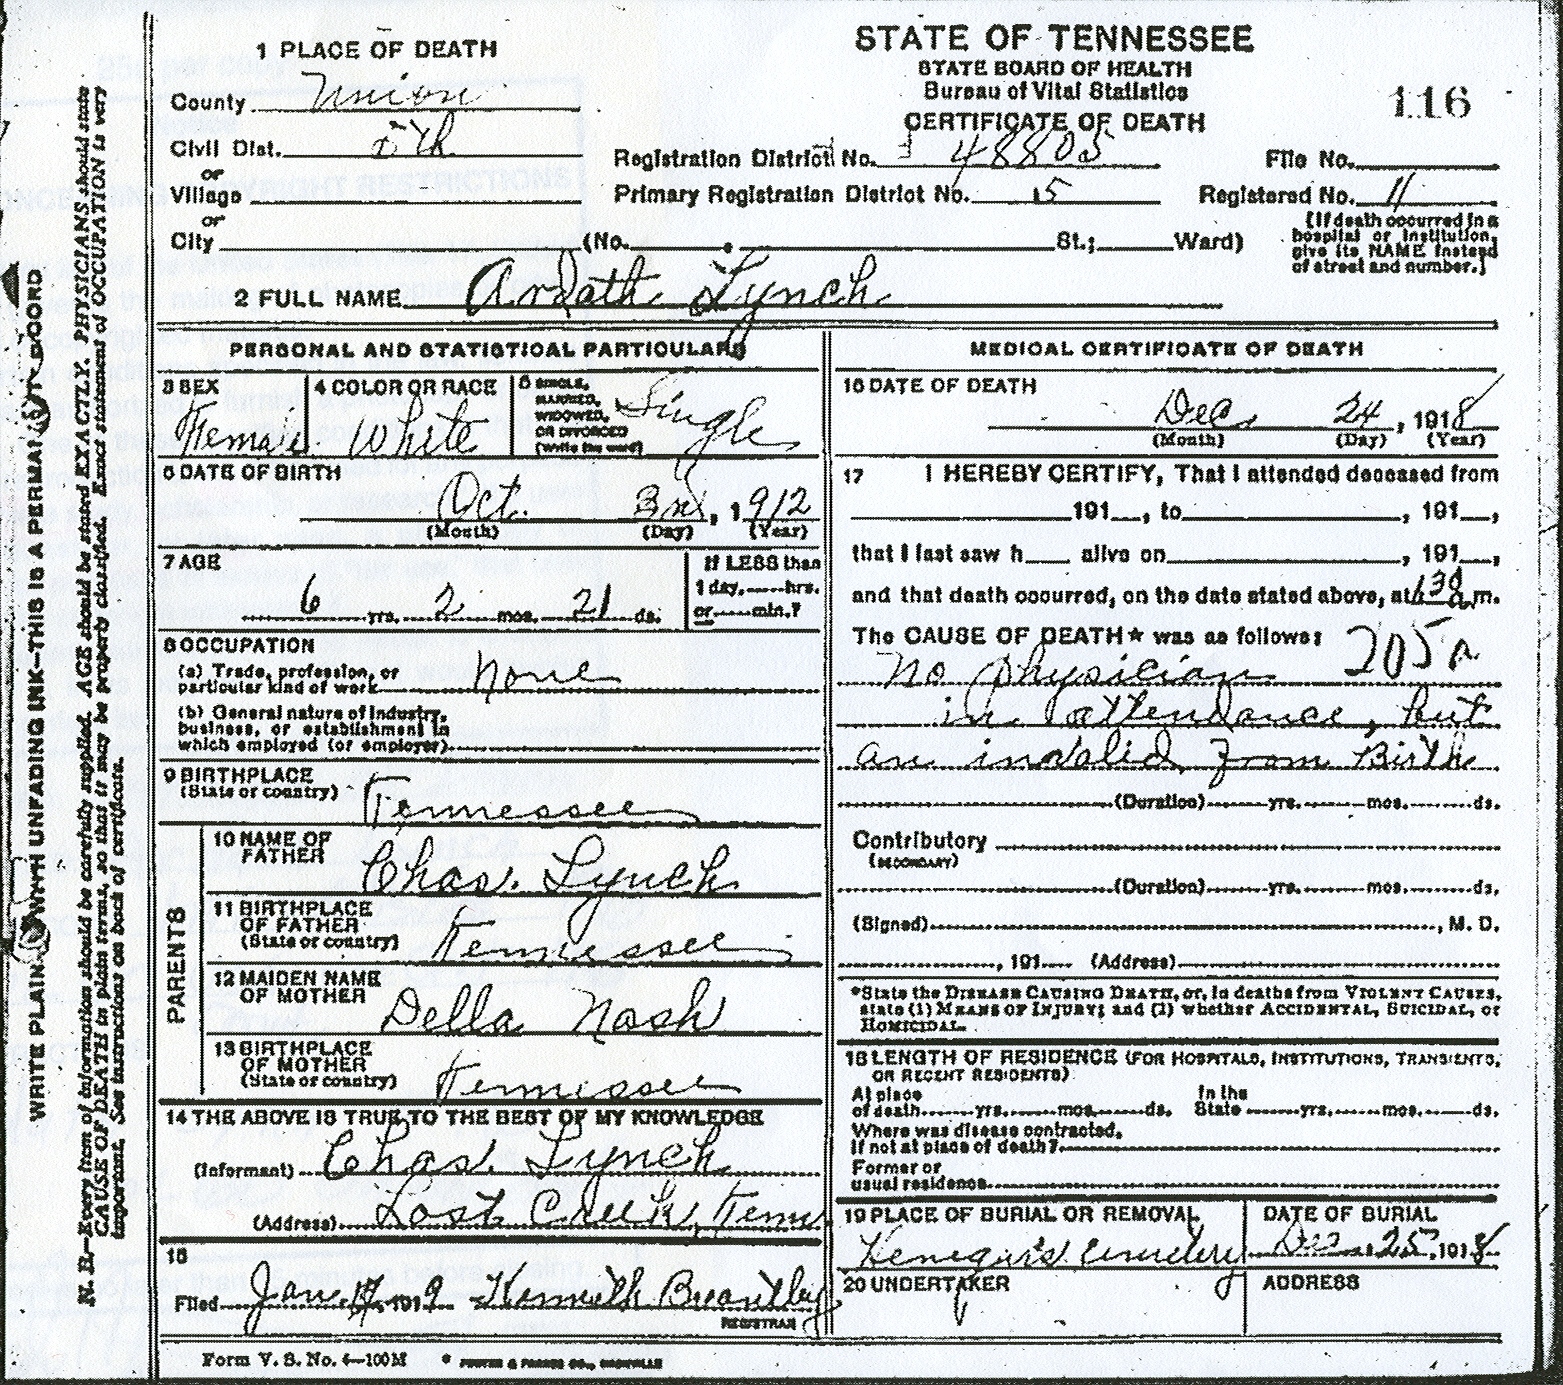 1 PLACE OF DEATH
County Union
Civil Dist. 5th
or
Village
or
City (No. , St.; Ward)
STATE OF TENNESSEE
STATE BOARD OF HEALTH
Bureau of Vital Statistics
CERTIFICATE OF DEATH
116
Registration District No. 48805 File No.
Primary Registration District No. 15 Registered No. 11
[If death occurred in a
hospital or institution,
give its NAME instead
of street and number.]
2 FULL NAME Ardath Lynch
PERSONAL AND STATISTICAL PARTICULARS
3 SEX
Female
4 COLOR OR RACE
White
5 SINGLE,
MARRIED,
WIDOWED,
OR DIVORCED
(Write the word)
Single
6 DATE OF BIRTH
Oct. 3rd, 1912
(Month) (Day) (Year)
7 AGE
6 yrs. 2 mos. 21 ds.
If LESS than
1 day, hrs.
or min.?
8 OCCUPATION
(a) Trade, profession, or
particular kind of work None
(b) General nature of industry,
business, or establishment in
which employed (or employer)
9 BIRTHPLACE
(State or country) Tennessee
PARENTS
10 NAME OF
FATHER Chas. Lynch
11 BIRTHPLACE
OF FATHER
(State or country) Tennessee
12 MAIDEN NAME
OF MOTHER Della Nash
13 BIRTHPLACE
OF MOTHER
(State or country) Tennessee
14 THE ABOVE IS TRUE TO THE BEST OF MY KNOWLEDGE
(Informant) Chas. Lynch
(Address) Lost Creek, Tenn
15
Filed Jan. 1919 Kenneth Brantley
REGISTRAR
MEDICAL CERTIFICATE OF DEATH
16 DATE OF DEATH
Dec. 24, 1918
(Month) (Day) (Year)
17 I HEREBY CERTIFY, That I attended deceased from
191 , to , 191 ,
that I last saw h alive on , 191 ,
and that death occurred, on the date stated above, at 1 30 a m.
The CAUSE OF DEATH* was as follows: 205a
No physician
in attendance, but
an invalid from Birth
(Duration) yrs. mos. ds.
Contributory
(SECONDARY)
(Duration) yrs. mos. ds.
(Signed) , M. D.
, 191 (Address)
*State the DISEASE CAUSING DEATH, or, in deaths from VIOLENT CAUSES,
state (1) MEANS OF INJURY; and (2) whether ACCIDENTAL, SUICIDAL, or
HOMICIDAL.
18 LENGTH OF RESIDENCE (FOR HOSPITALS, INSTITUTIONS, TRANSIENTS,
OR RECENT RESIDENTS)
At place
of death yrs. mos. ds.
In the
State yrs. mos. ds.
Where was disease contracted,
if not at place of death?
Former or
usual residence
19 PLACE OF BURIAL OR REMOVAL
cemetery
DATE OF BURIAL
Dec. 25, 1918
20 UNDERTAKER
ADDRESS
Form V. S. No. 4—100M
WRITE PLAINLY WITH UNFADING INK—THIS IS A PERMANENT RECORD
N. B.—Every item of information should be carefully supplied. AGE should be stated EXACTLY. PHYSICIANS should state
CAUSE OF DEATH in plain terms, so that it may be properly classified. Exact statement of OCCUPATION is very
important. See instructions on back of certificate.